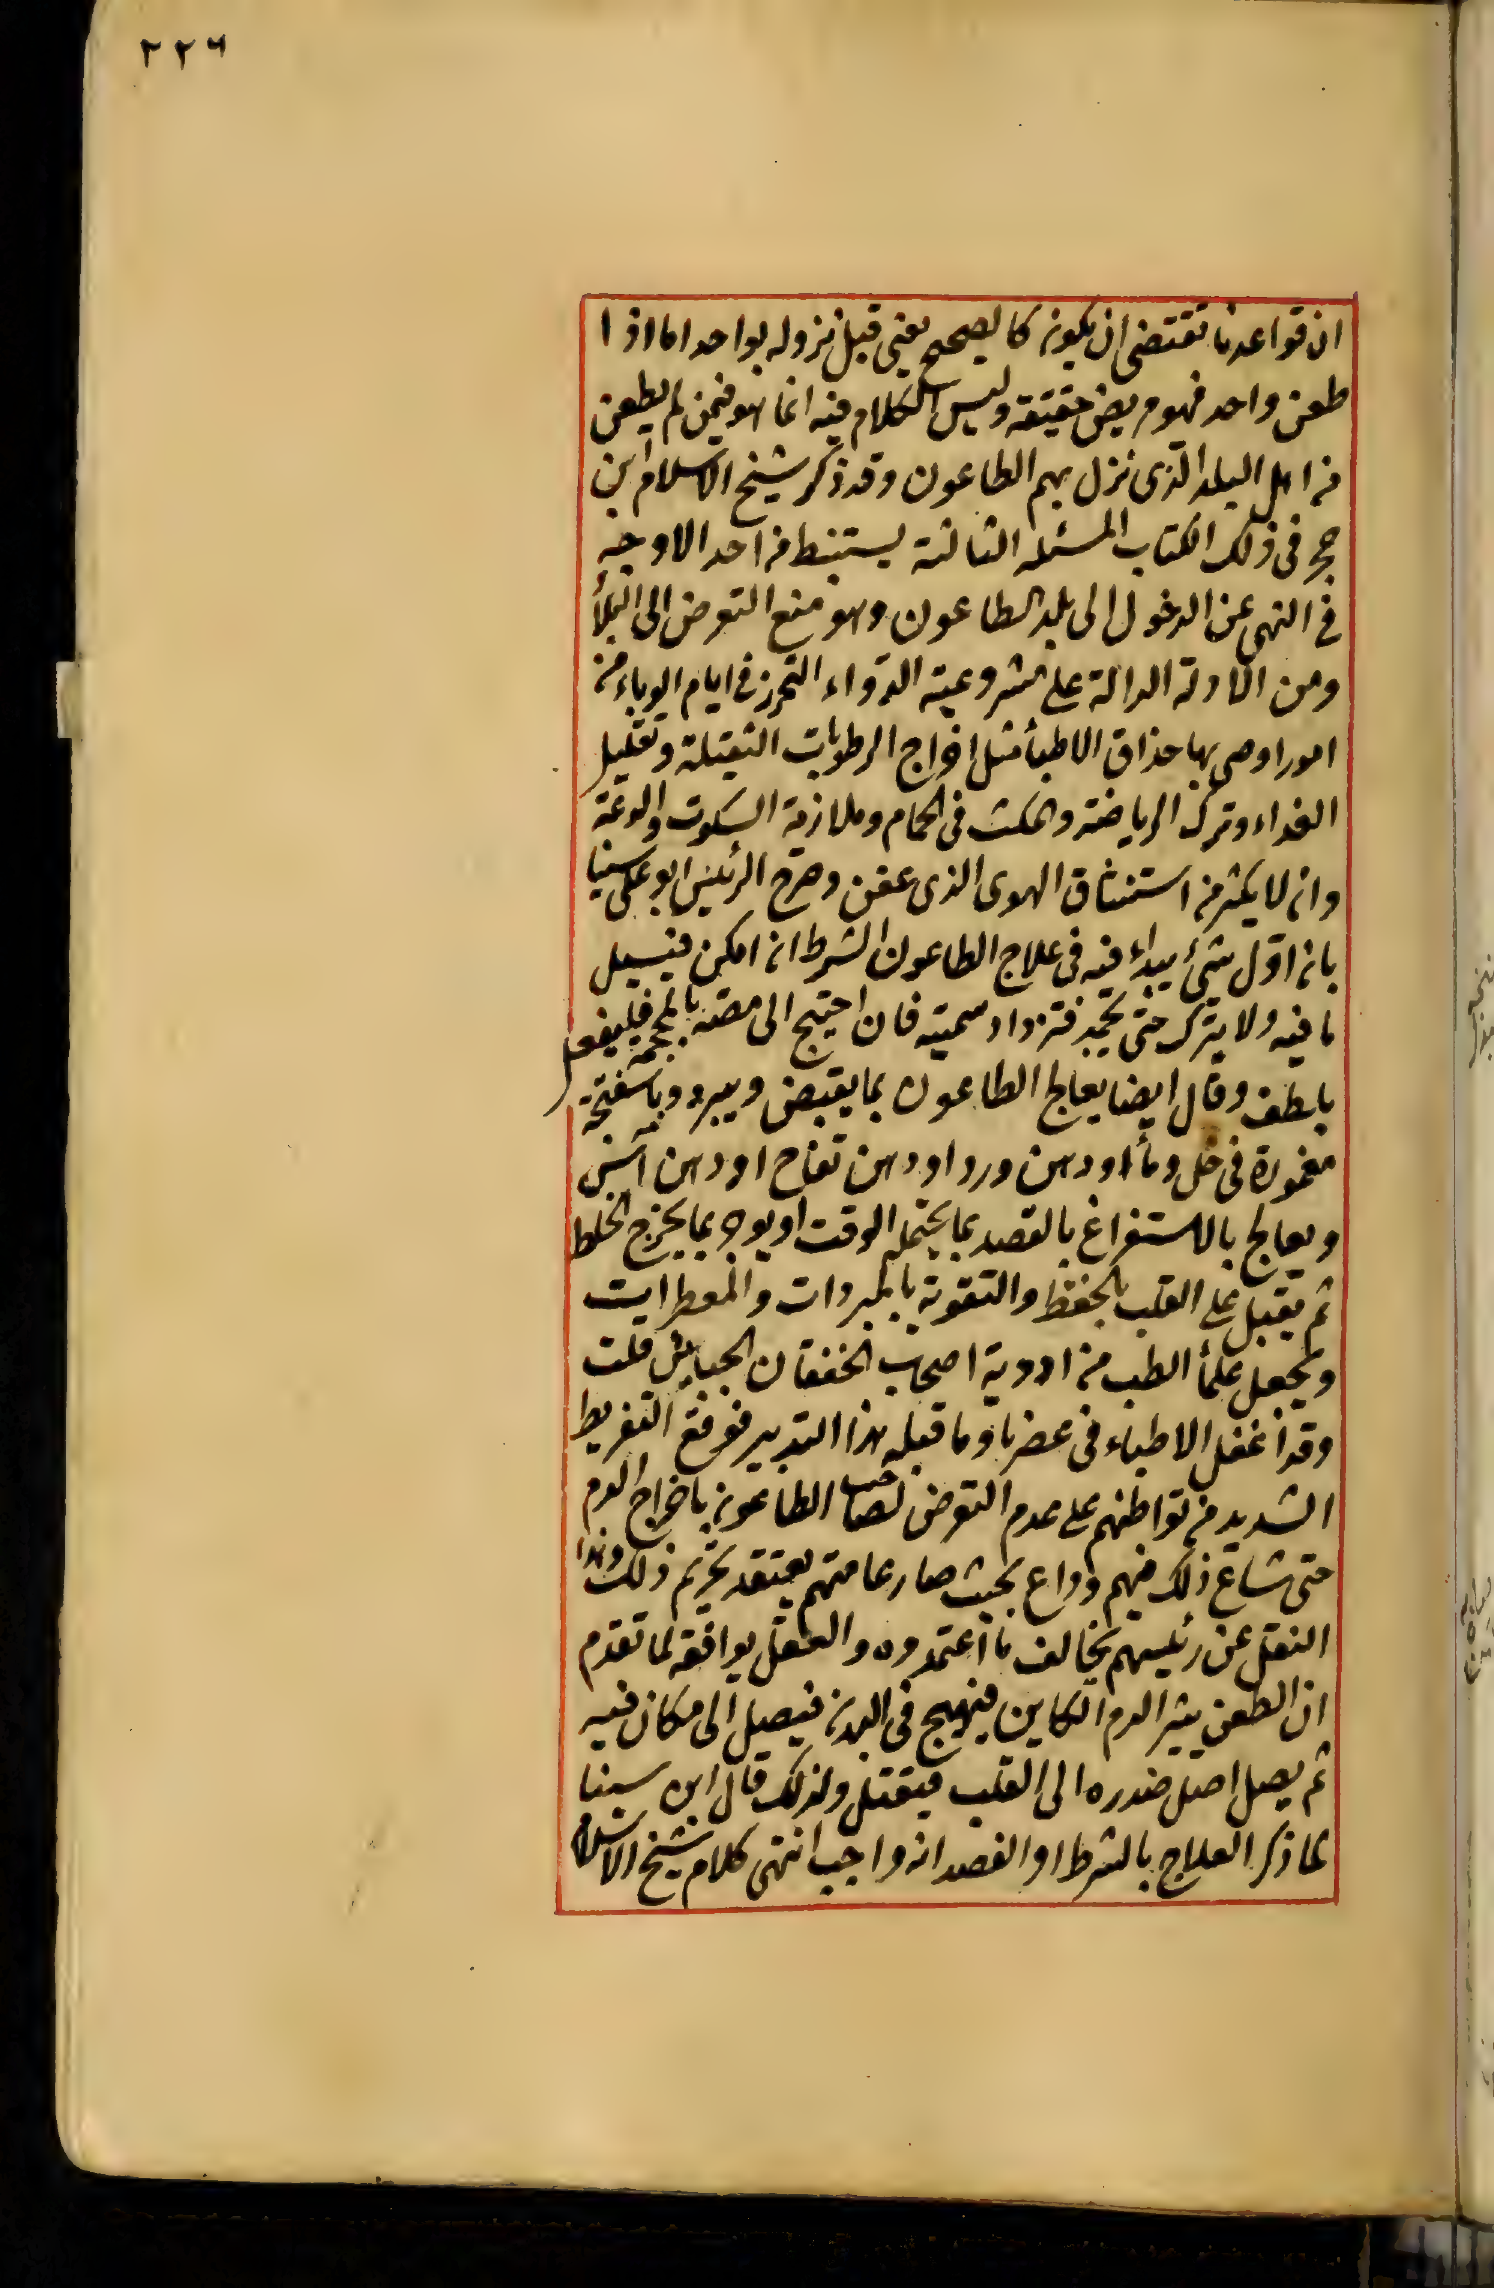 ٢٢٦
ان قواعدنا تقتضى ان يكون كالصحيح يعنى قبل نزوله بواحد اما اذا
طعن واحد فهو مريض حقيقة وليس الكلام فيه انما هو فيمن لم يطعن
من اهل البلد الذى نزل بهم الطاعون وقد ذكر شيخ الاسلام ابن
حجر فى ذلك الكتاب المسئله الثالثة يستنبط من احد الاوجه
فى النهى عن الدخول الى بلد الطاعون وهو منع التعرض الى البلأ
ومن الادلة الدالة على مشروعية الدواء التحرز فى ايام الوباء من
امور اوصى بها حذاق الاطبأ مثل اخراج الرطوبات الثقيلة وتقليل
الغداء وترك الرياضة والمكث فى الحمام وملازمة السكوت والدعة
وان لا يكثر من استنشاق الهوى الذى عفن وصرح الرئيس ابو على سينا
بان اول شئ يبداء فيه فى علاج الطاعون الشرط ان امكن فيسيل
ما فيه ولا يترك حتى يجمد فتزداد سميته فان احتيج الى مصه بالمحجمة فليفعل
بلطف وقال ايضا يعالج الطاعون بما يقبض ويبرد وباسفنجة
مغمورة فى خل ومأ او دهن ورد او دهن تفاح او دهن آس
ويعالج بالاستفراغ بالفصد بما يحتمله الوقت او يوجه بما يخرج الخلط
ثم يقبل على القلب بالحفظ والتقوية بالمبردات والمعطرات
ويجعل علمأ الطب من ادوية اصحاب الخفقان قلت
وقد اغفل الاطباء فى عصرنا وما قبله هذا التدبير فوقع التفريط
الشديد من تواطئهم على عدم التعرض لصاحب الطاعون باخراج الدم
حتى شاع ذلك فيهم وذاع بحيث صار عامتهم يعتقد تحريم ذلك وهذا
النقل عن رئيسهم يخالف ما اعتمدوه والعقل يوافقه لما تقدم
ان الطعن يثير الدم الكاين فيهيج فى البدن فيصل الى مكان فيه
ثم يصل اصل ضرره الى القلب فيقتل ولذلك قال ابن سينا
لما ذكر العلاج بالشرط او الفصد انه واجب انتهى كلام شيخ الاسلام